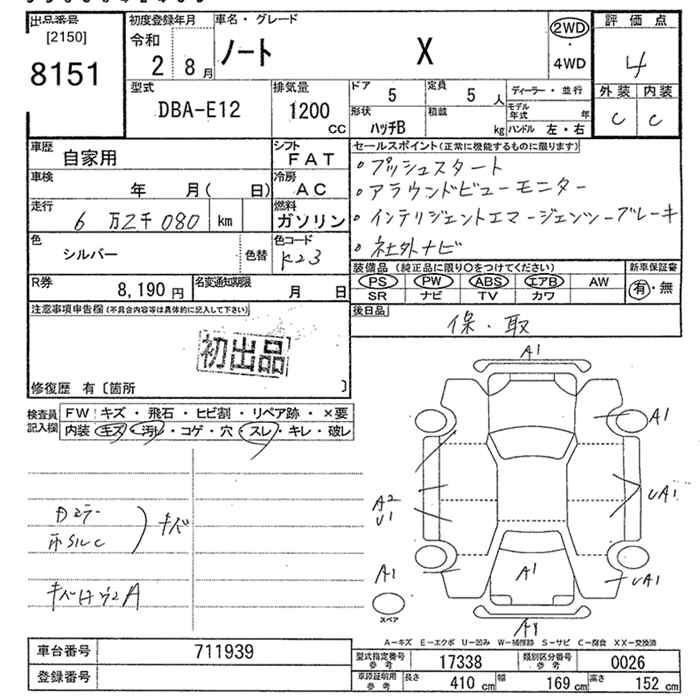 出品番号 初度登録年月 車名・グレード 評価点
[2150] 令和 ノート X 2WD ・ 4WD 4
8151 2 8月 外装 内装
型式 排気量 ドア 5 定員 5人 ディーラー・並行 C C
DBA-E12 1200 CC 形状 ハッチB 積載 kg モデル年式 年 ハンドル 左・右
車歴 自家用 シフト FAT セールスポイント(正常に機能するものに限ります)
車検 年 月( 日) 冷房 AC 。プッシュスタート
走行 6万2千080 km 燃料 ガソリン 。アラウンドビューモニター
。インテリジェントエマージェンシーブレーキ
色 シルバー 色替 色コード K23 。社外ナビ
R券 8,190円 名変通知期限 月 日 装備品(純正品に限り○をつけてください) 新車保証書
PS PW ABS エアB AW 有・無
SR ナビ TV カワ
注意事項申告欄(不具合内容等は具体的に記入して下さい) 後日品 保・取
初出品
修復歴 有〔箇所 〕
検査員記入欄 FW キズ・飛石・ヒビ割・リペア跡・×要
内装 キズ・汚レ・コゲ・穴・スレ・キレ・破レ
A1
A1
A2
U1
UA1
A1
A1
UA1
スペア
A-キズ E-エクボ U-凹み W-補修跡 S-サビ C-腐食 XX-交換済
車台番号 711939 型式指定番号参考 17338 類別区分番号参考 0026
登録番号 車庫証明用参考 長さ 410cm 幅 169cm 高さ 152cm